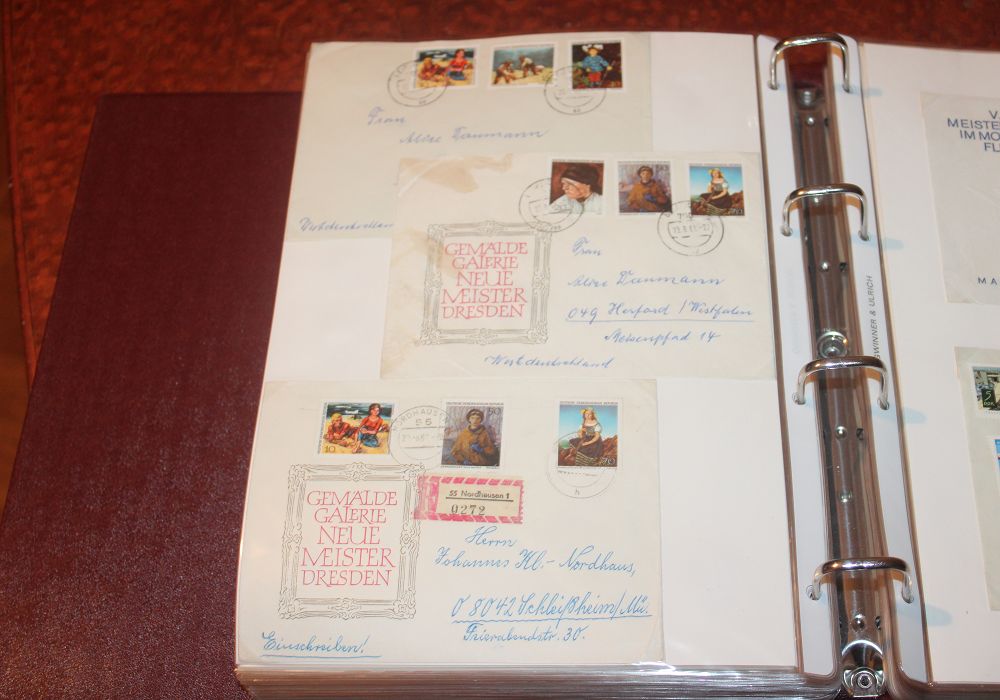 Frau
Alice Daumann
Westdeutschland
GEMÄLDE
GALERIE
NEUE
MEISTER
DRESDEN
Frau
Alice Daumann
049 Herford / Westfalen
14
Westdeutschland
10
NORDHAUSEN
55
50
70
55 Nordhausen 1
0272
GEMÄLDE
GALERIE
NEUE
MEISTER
DRESDEN
Herrn
Johannes Kl.- Nordhaus,
0 8042 Schleißheim/Mü.
Feierabendstr. 30.
Einschreiben!
MEISTE
IM MO
FL
MA
GSWINNER & ULRICH
5
DDR